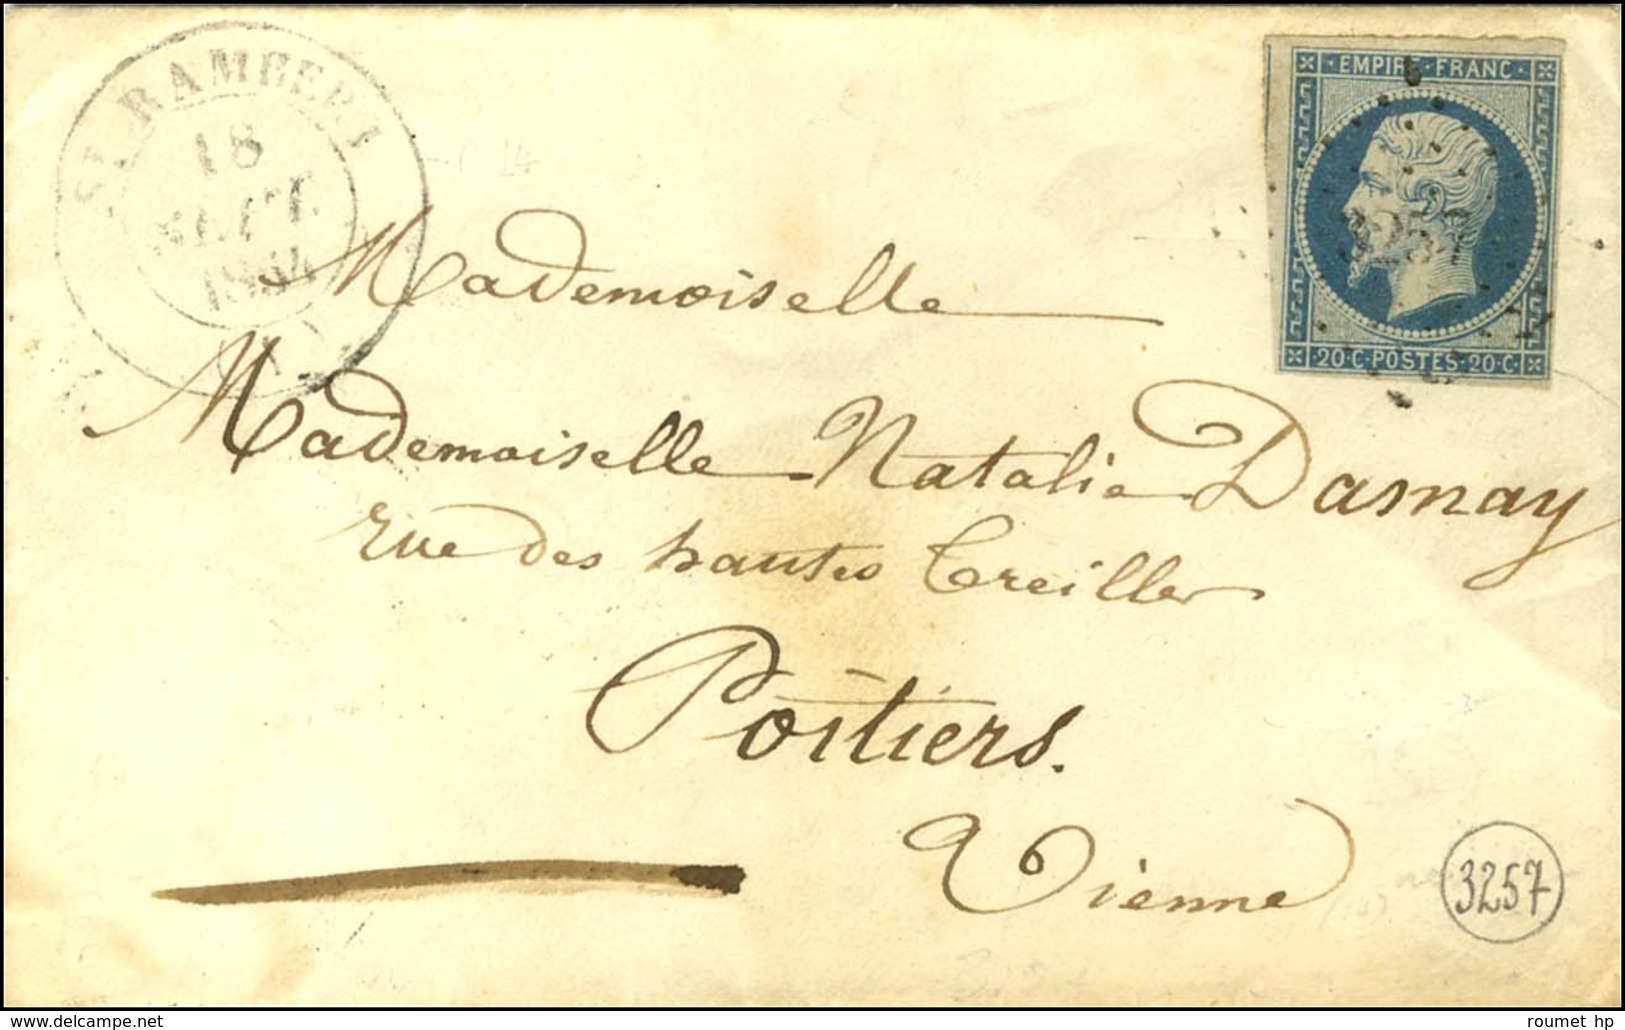 ST. RAMBERT
18
SEPT.
1854
EMPIRE FRANC
3257
20·C·POSTES·20·C
Mademoiselle
Mademoiselle Natalie Damay
rue des hautes Treilles
Poitiers.
Vienne
3257
www.delcampe.net
roumet hp